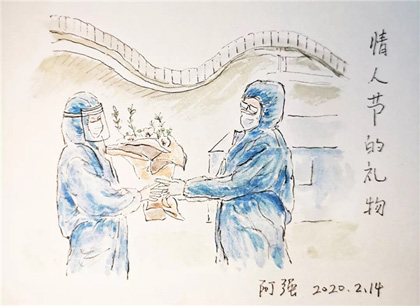 情人节的礼物
阿强 2020.2.14